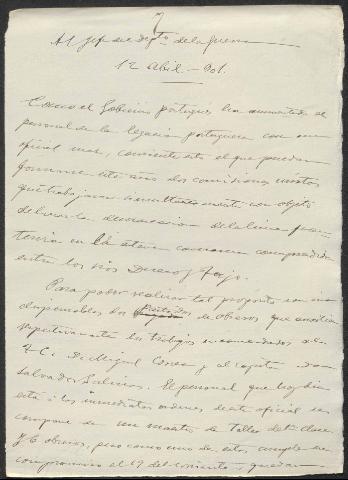 7
Al jefe del Depto de la Guerra
12 Abril - 901.
Como el Gobierno portugues ha aumentado el
personal de la legacion portuguesa con un
oficial mas, consiente esto el que puedan
formarse este año dos comisiones mixtas
que trabajaran simultaneamente con objeto
de llevar la demarcacion de la linea fron-
teriza en la comarca comprendida
entre los rios Duero y Tajo.
Para poder realizar tal proposito son in-
dispensables los de obreros que auxilien
respectivamente los trabajos encomendados al
T. C. D. Miguel Correa y al capitan don
Salvador Salinas. El personal que hoy dia
está a las inmediatas ordenes de este oficial se
compone de un maestro de Taller de 1ª clase
y 6 obreros, pero como uno de estos cumple su
compromiso el 19 del corriente, quedan